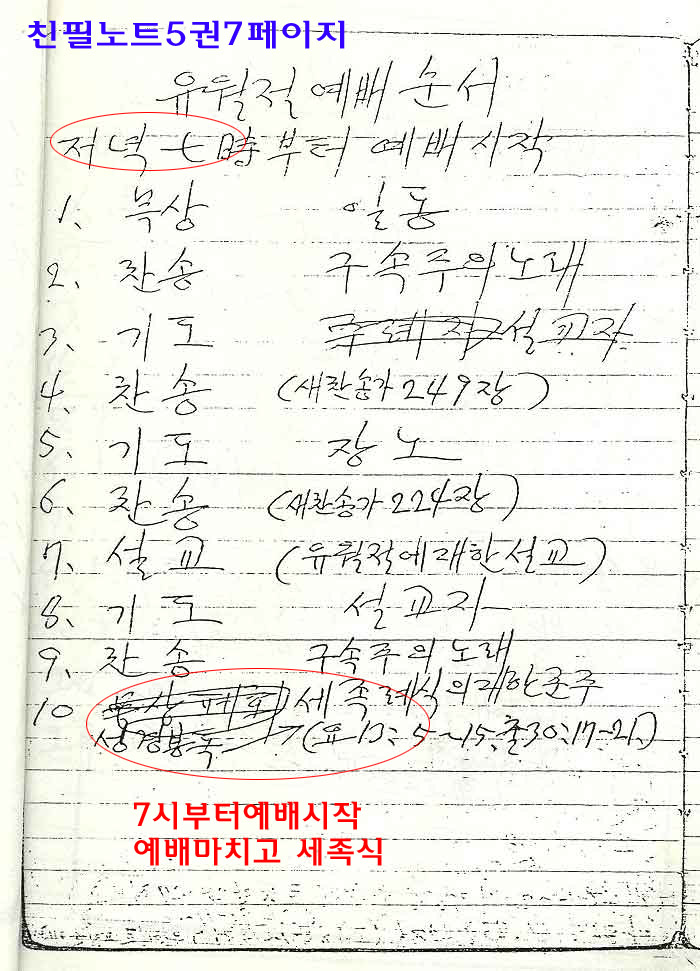 친필노트5권7페이지
유월절 예배 순서
저녁 七時부터 예배시작
1. 묵상 일동
2. 찬송 구속주의노래
3. 기도 설교자
4. 찬송 (새찬송가 249장)
5. 기도 장노
6. 찬송 (새찬송가 224장)
7. 설교 (유월절에대한설교)
8. 기도 설교자
9. 찬송 구속주의 노래
10 세족례식의대한준주
성경봉독 (요13:5~15, 출30:17-21)
7시부터예배시작
예배마치고 세족식